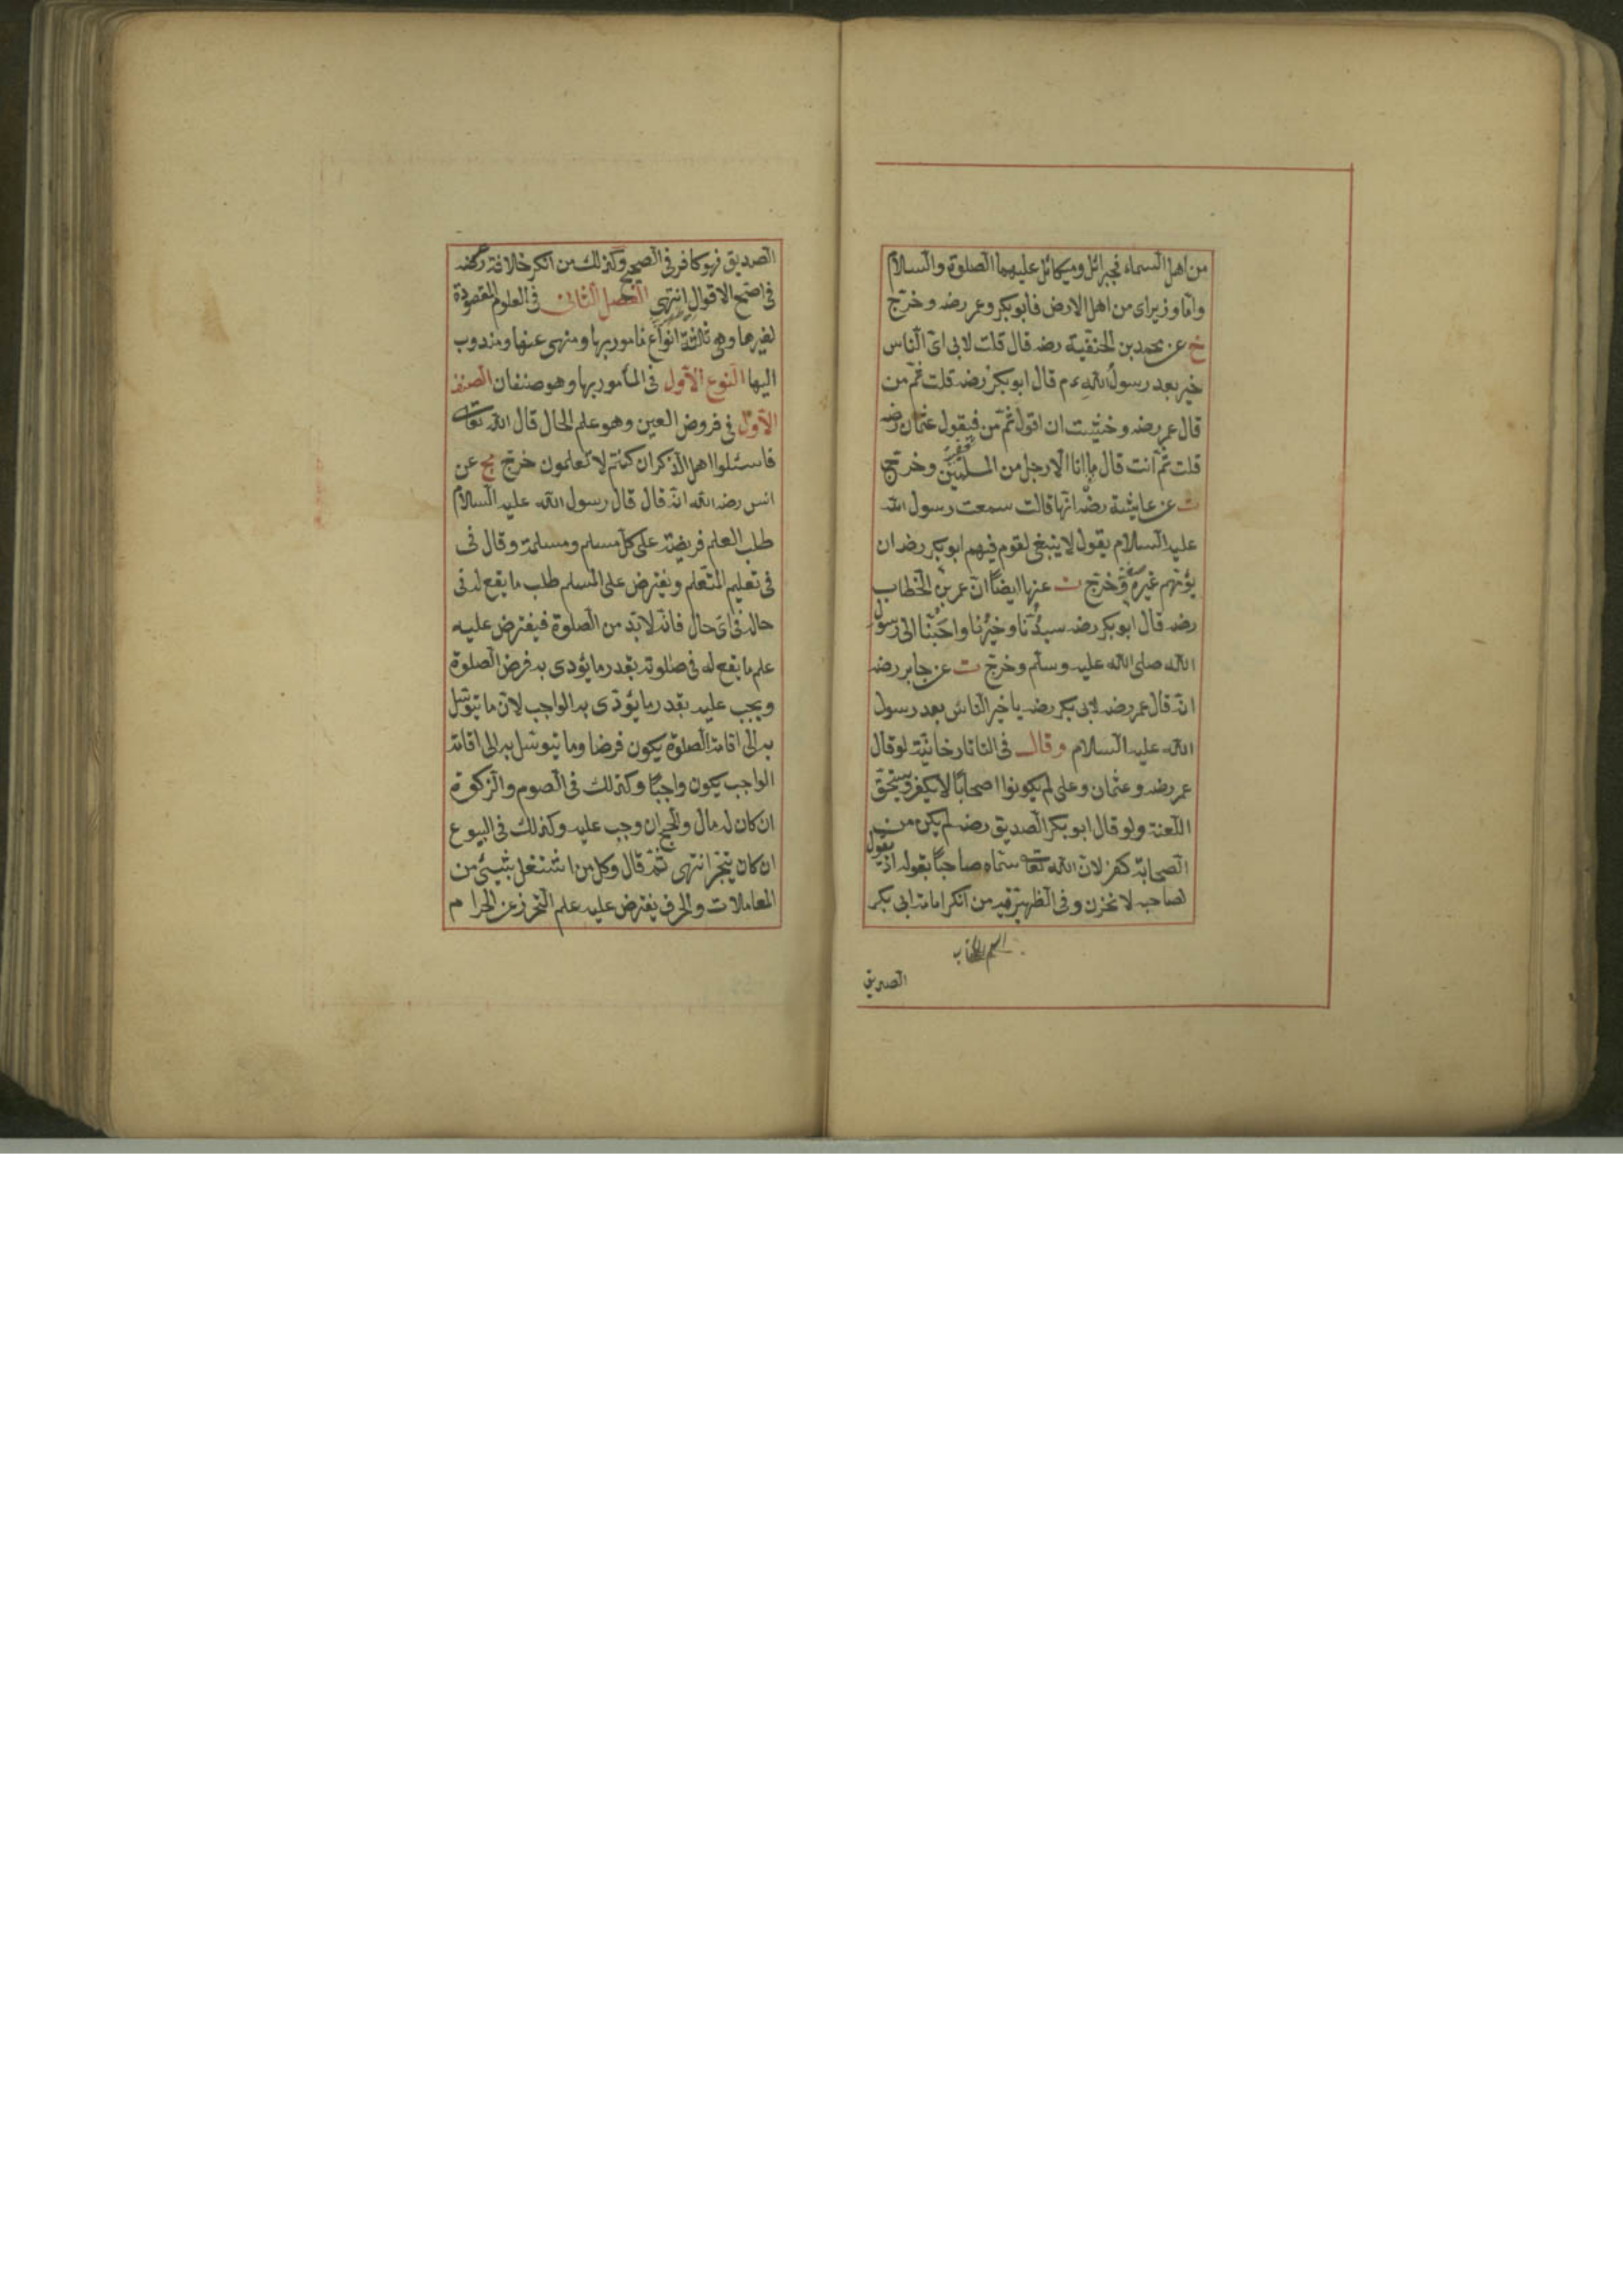 من اهل السماء فجبرائل وميكائل عليهما الصلوة والسلام
واما وزيراى من اهل الارض فابوبكر وعمر رضه وخرّج
خ عن محمد بن الحنفية رضه قال قلت لابى اىّ الناس
خير بعد رسول الله ءم قال ابوبكر رضه قلت ثمّ من
قال عمر رضه وخشيت ان اقول ثمّ من فيقول عثمان رضه
قلت ثمّ انت قال ما انا الا رجل من المسلمين وخرّج
ت عن عايشة رضه انّها قالت سمعت رسول الله
عليه السلام يقول لا ينبغى لقوم فيهم ابوبكر رضه ان
يؤمّهم غيره وخرّج ت عنها ايضاً انّ عمر بن الخطاب
رضه قال ابوبكر رضه سيدُنا وخيرُنا واحبّنا الى رسول
الله صلى الله عليه وسلم وخرّج ت عن جابر رضه
انه قال عمر رضه لابى بكر رضه يا خير الناس بعد رسول
الله عليه السلام وقال فى التاتارخانيّة لو قال
عمر رضه وعثمان وعلى لم يكونوا اصحابا لا يكفر ويستحقّ
اللعنة ولو قال ابوبكر الصديق رضه لم يكن من
الصحابة كفر لانّ الله تعا سمّاه صاحباً بقوله اذ يقول
لصاحبه لا تحزن وفى الظهيرية من انكر امامة ابى بكر
الصديق
الصديق فهو كافر فى الصحيح وكذلك من انكر خلافة رضه
فى اصح الاقوال انتهى الفصل الثانى فى العلوم المقصودة
لغيرها وهى ثلاثة انواع مأمور بها ومنهى عنها ومندوب
اليها النوع الاول فى المأمور بها وهو صنفان الصنف
الاوّل فى فروض العين وهو علم الحال قال الله تعالى
فاسئلوا اهل الذكر ان كنتم لا تعلمون خرّج مج عن
انس رضه الله انه قال قال رسول الله عليه السلام
طلب العلم فريضة على كلّ مسلم ومسلمة وقال فى
فى تعليم المتعلم ويفترض على المسلم طلب ما يقع له فى
حاله فى اى حال فانه لا بدّ من الصلوة فيفترض عليه
علم ما يقع له فى صلوته بقدر ما يؤدى به فرض الصلوة
ويجب عليه بقدر ما يؤدّى به الواجب لانّ ما يتوسّل
به الى اقامة الصلوة يكون فرضا وما يتوسّل به الى اقامة
الواجب يكون واجبًا وكذلك فى الصوم والزكوة
ان كان له مال والحج ان وجب عليه وكذلك فى البيوع
ان كان يتجر انتهى ثمّ قال وكل من اشتغل بشيئ من
المعاملات والحرف يفترض عليه علم التحرز عن الحرام